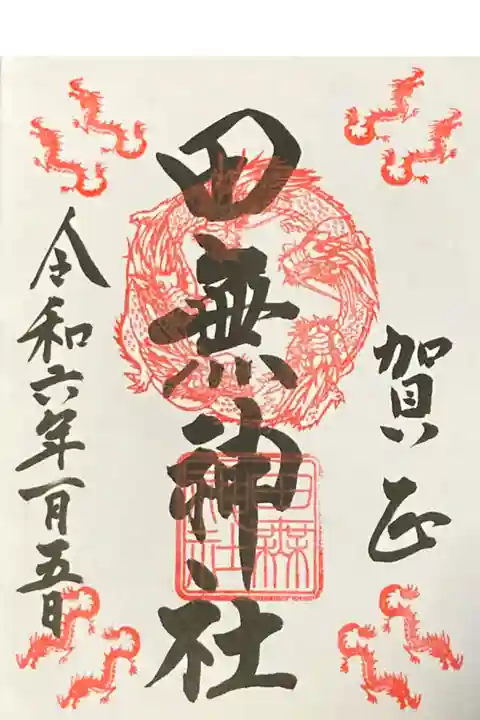 賀正
田無神社
令和六年一月五日
田無神社